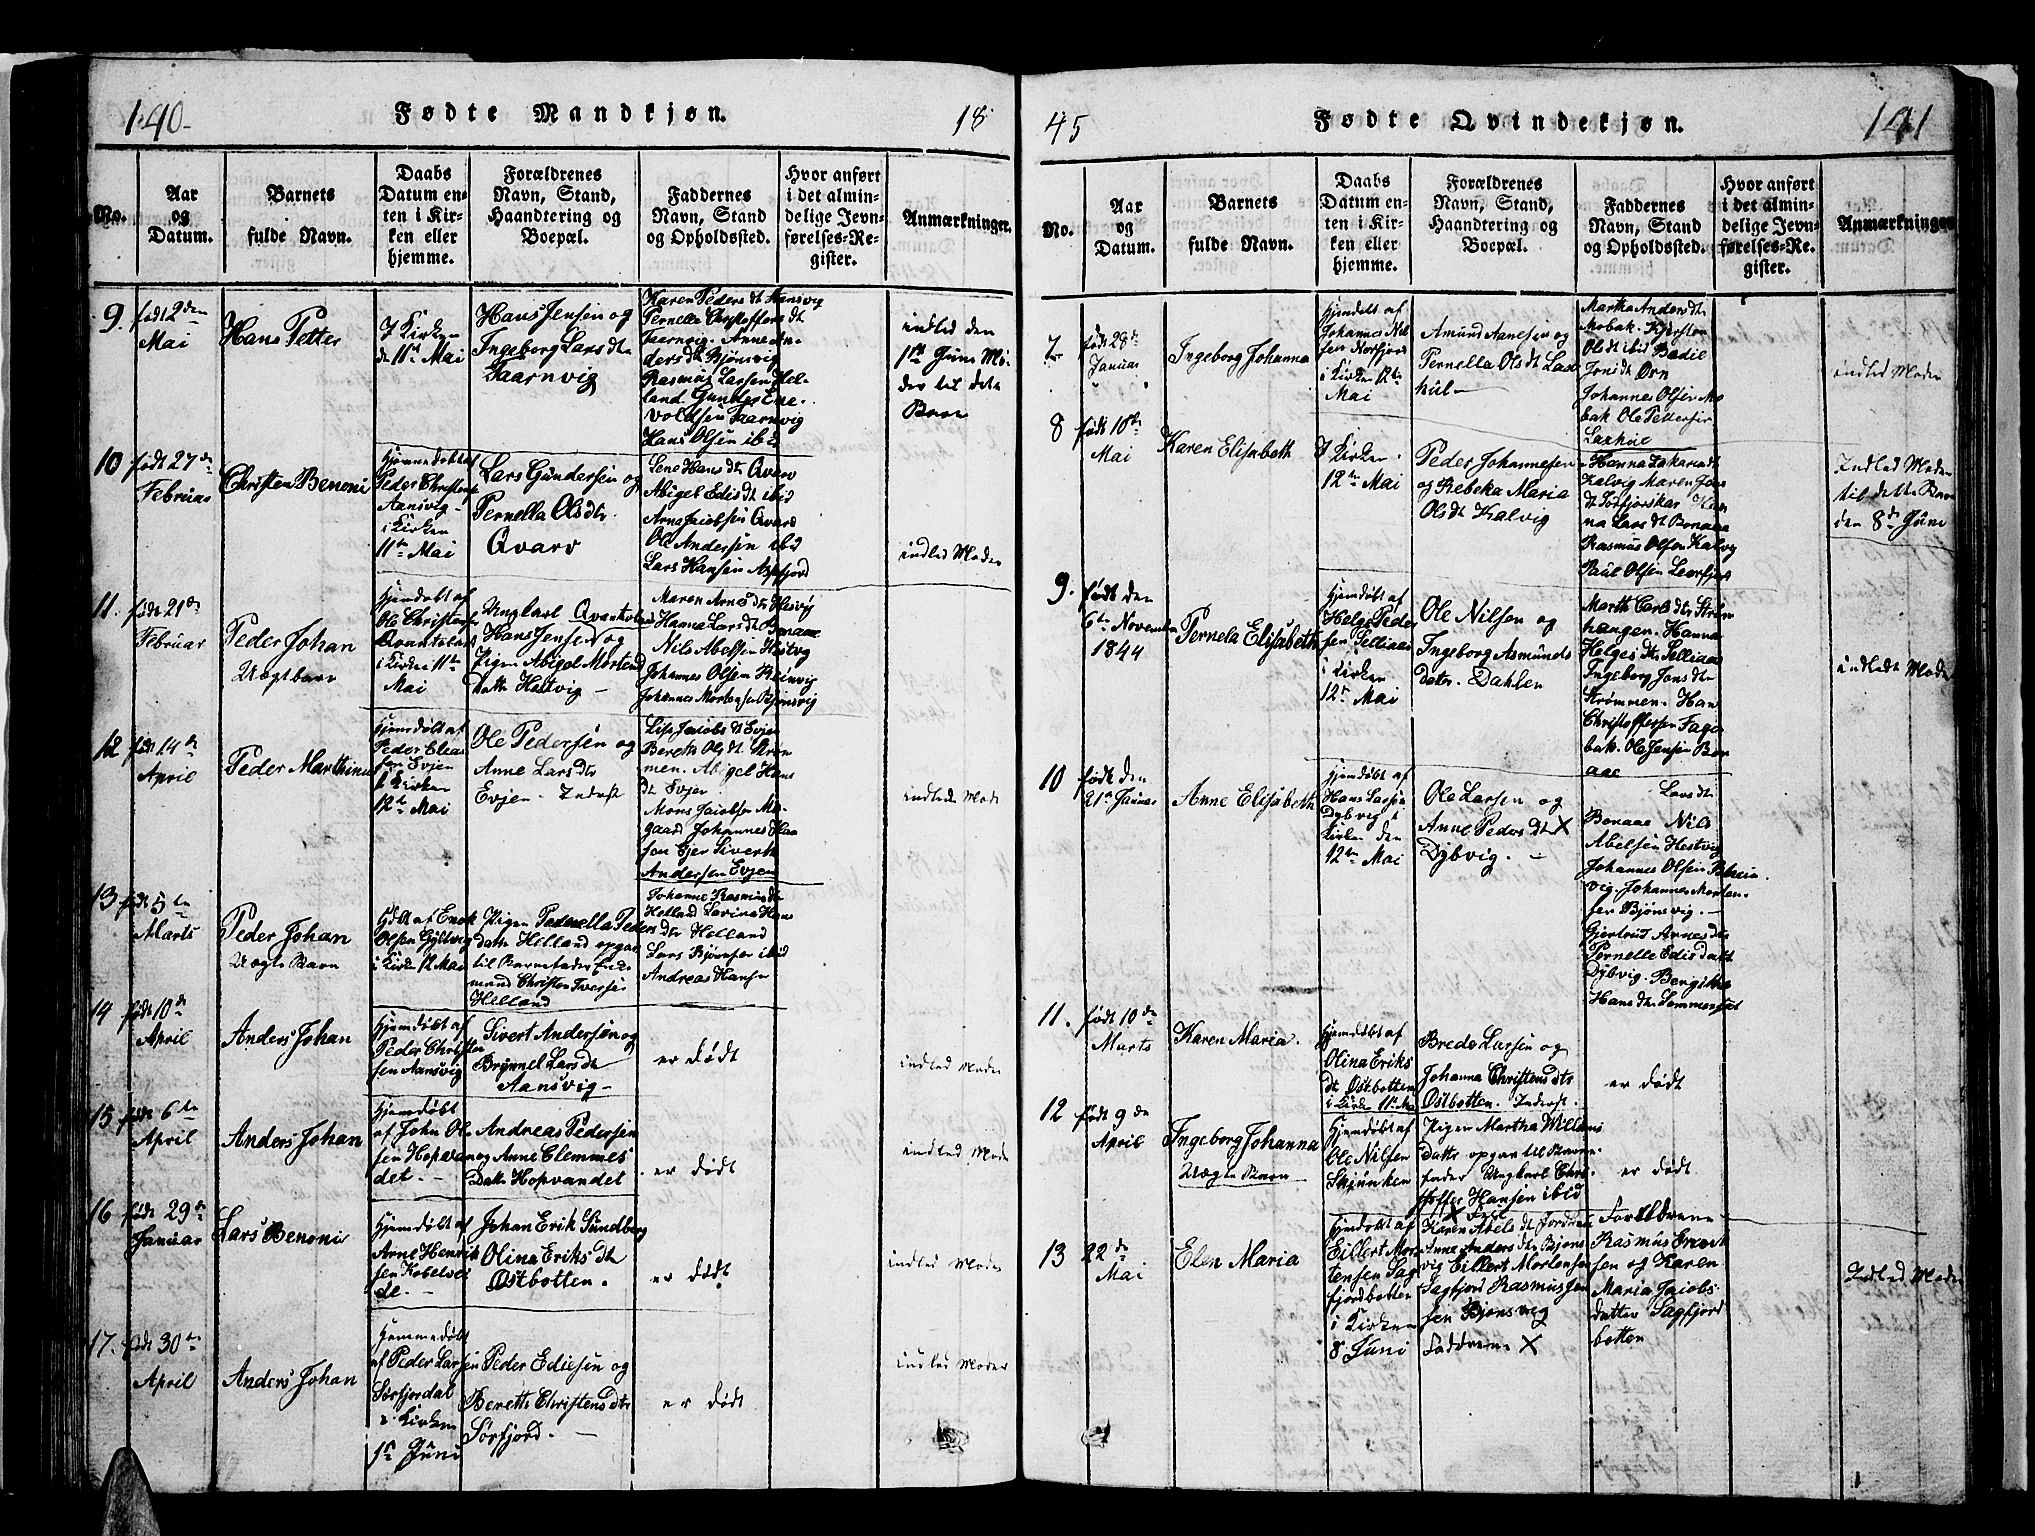 140.
Fødte Mandkjøn.
18
No.
Aar
og
Datum.
Barnets
fulde Navn.
Daabs
Datum en-
ten i Kir-
ken eller
hjemme.
Forældrenes
Navn, Stand,
Haandtering og
Boepæl.
Faddernes
Navn, Stand
og Opholdssted.
Hvor anført
i det almin-
delige Jevn-
førelses-Re-
gister.
Anmærkninger.
9.
født 2den
Mai
Hans Petter
I Kirken
d 11te Mai
Hans Jensen og
Ingeborg Larsdtr
Taarnvig
Karen Pedersdt Aansvig
Pernella Christoffersdt
Taarnvig. Anne An-
dersdt Bjönsvig
Rasmus Larsen Hel-
land Gunder Ene-
voldsen Taarnvig
Hans Olsen ibd
indled den
1ste Juni Mo-
der til dette
Barn
10
født 27de
Februar
Christen Benoni
Hjemmedøbt af
Peder Christens
Aansvig
i Kirken
11te Mai
Lars Gundersen og
Pernella Olsdtr
Qvarv
Lene Hansdtr Qvarv
Abigel Edisdt ibid
Arne Jacobsen Qvarv
Ole Andersen ibid
Lars Hansen Aspfjord
indled Moder
11.
født 21de
Februar
Peder Johan
Uægtbarn
Hjemdøbt af
Ole Christens
i Kirken 11te
Mai
Ungkarl
Hans Jensen og
Pigen Abigel Mortens
Datter Hestvig
Maren Arnesdtr Hesvig
Hanna Larsdt Bonaae
Nils Abelsen Hestvg
Johannes Olsen Reinvig
Johannes Mortensen Bjönsvig
12
født 14de
April
Peder Marthinus
Hjemdøbt af
Peder Elea
sen Evjen
i Kirken
12te Mai
Ole Pedersen og
Anne Larsdtr
Evjen. Inderst
Lise Jacobsdt Evjen
Bereth Olsdt Strøm
men. Abigel Hans
dt Evjen
Mons Jacobsen Mo-
gaard Johannes Han
sen Ejen Siverth
Andersen Evjen
indled Mode
13
født 5te
Marts
Peder Johan
Uægte Barn
Hjdbt af Enok
Olsen Gyltvig
i Kirke 12 Mai
Pigen Pernella Peders
datter Helland opgav
til Barnefader Enke
mand Christen Iversen
Helland
Johanne Rasmusdtr
Helland Lavina Hans
dtr Helland
Lars Bjørnsen ibid
Andreas Hansen
14
født 10de
April
Anders Johan
Hjemdøbt af
Peder Christen
sen Aansvig
Sivert Andersen og
Brynnel Larsdt
Aansvig
er dødt
indled Moder
15
født 6te
April
Anders Johan
Hjemdøbt
af John Ol
sen Hopvan
det.
Andreas Pedersen
og Anne Clemmes
Datter Hopvandet
er dødt
indled Mode
16
født 29de
Januar
Lars Benoni
Hjemdøbt af
Arne Henrik
sen Kobelvei
de.
Johan Erik Sundberg
Olina Eriksdtr
Østbotten.
er dødt
indled Moder
17.
født 30te
April
Anders Johan
Hjemmedøbt
af Peder Larsen
Sørfjordal
i Kirken
1ste Juni
Peder Ediesen og
Berette Christensdtr
Sørfjord.
er dødt
indled Moder
45
Fødte Qvindekjøn.
141
No.
Aar
og
Datum.
Barnets
fulde Navn.
Daabs
Datum en-
ten i Kir-
ken eller
hjemme.
Forældrenes
Navn, Stand,
Haandtering og
Boepæl.
Faddernes
Navn, Stand
og Opholdssted.
Hvor anført
i det almin-
delige Jevn-
førelses-Re-
gister.
Anmærkninger
7
født 28de
Januar
Ingeborg Johanna
Hjemdøbt af
Johannes Nil
sen Norfjord
i Kirken
Mai
Amund Aanesen og
Pernella Olsdt Lax
hul
Martha Andersdt
Mobak. Kjersten
Olsdt ibid Bodil
Jonsdt Ørn
Johannes Olsen Mo
bak Ole Pettersen
Laxhul
indled Moder
8
født 10de
Mai
Karen Elisabeth
I Kirken
12te Mai
Peder Johannesen
og Rebeka Maria
Olsdt Kalvig
Hanna Zakariadt
Kalvig Maren Jons
dt Torfjorskar Han
na Larsdt Bonaae
Rasmus Olsen Kalvig
Paul Olsen Leerfjord
Indled Moder
til dette Barn
den 8de Juni
9.
født den
6te November
1844
Pernela Elisabeth
Hjemdøbt af
Helge Peder
sen Selliaas
i Kirken
12te Mai
Ole Nilsen og
Ingeborg Asmunds
Datter. Dahlen
Marth Carlsdtr Strøm
hangen. Hanna
Helgesdtr Selliaas
Ingeborg Jonsdtr
Strømmen. Han
Christoffersen Fager
bak. Ole Jensen Bon
aae
indledt Moder
10
født den
21de Januar
Anne Elisabeth
Hjemdøbt af
Hans Larsen
Dybvig i
Kirken den
12te Mai
Ole Larsen og
Anne Pedersdtr X
Dybvig.
Larsdtr
Bonaae Nils
Abelsen Hestvig
Johannes Olsen Rein
vig. Johannes Morten
sen Bjønsvig.
Gjertrud Arnesdtr
Pernelle Edisdatt
Dybvig. Bergithe
Hansdtr Sommerset
11.
født 10de
Marts
Karen Maria.
Hjemdøbt af
Olina Eriks
dt Østbotten
i Kirken 11te Ma
Brede Larsen og
Johanna Christensdtr
Østbotten. Inderst.
er dødt
12
født 9de
April
Ingeborg Johanna
Uægte Barn
Hjemdøbt af
Ole Nilsen
Skjunken
Pigen Martha Willums
Datter opgav til Barne
fader Ungkarl Chri
stoffer Hansen ibid
er dødt
13
22de
Mai
Elen Maria
Hjemdøbt af
Eillert Mor
tensen Sag
fjordbotten
i Kirken
8 Juni
X
Karen Abelsdt
Anne Andersdtr Bjøns
vig Eillert Mortensen
Sagfjord Rasmus Jen
sen Bjønsvig
Faddrene X
Foreldrene
Rasmus Sivert
sen og Karen
Maria Jacobs
datter Sagfjord
botten
Indled Moder